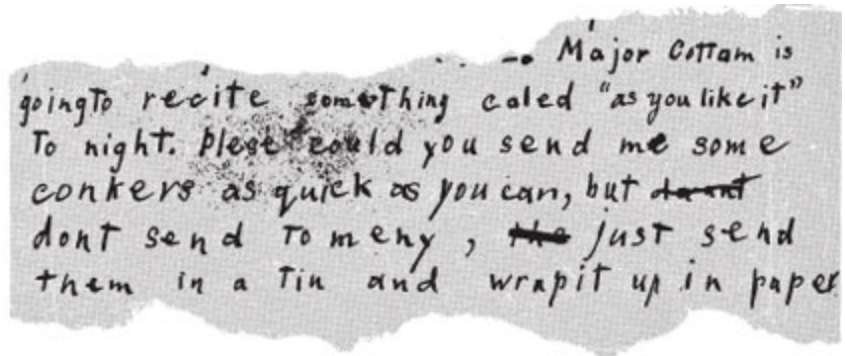 Major Cottam is
going to recite somthing caled "as you like it"
To night. Plese could you send me some
conkers as quick as you can, but
dont send to meny, the just send
them in a tin and wrap it up in paper